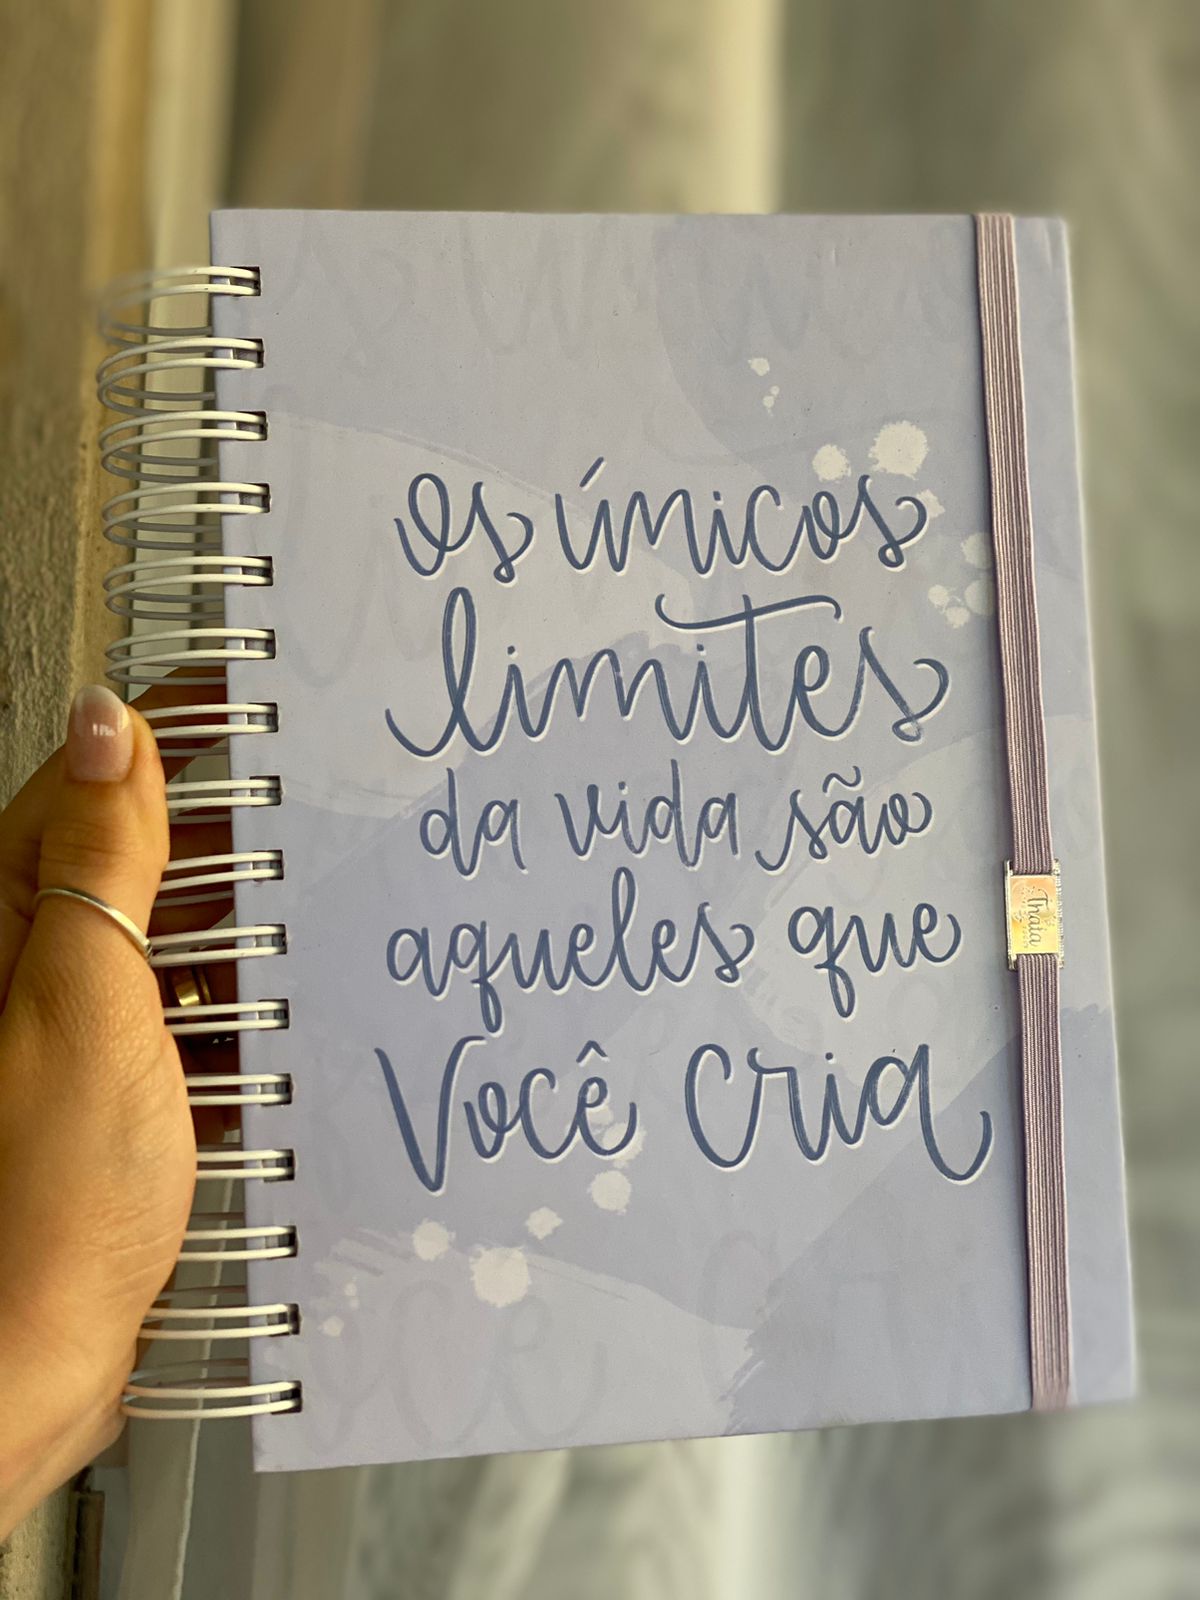 Os únicos
limites
da vida são
aqueles que
Você cria
Thaia